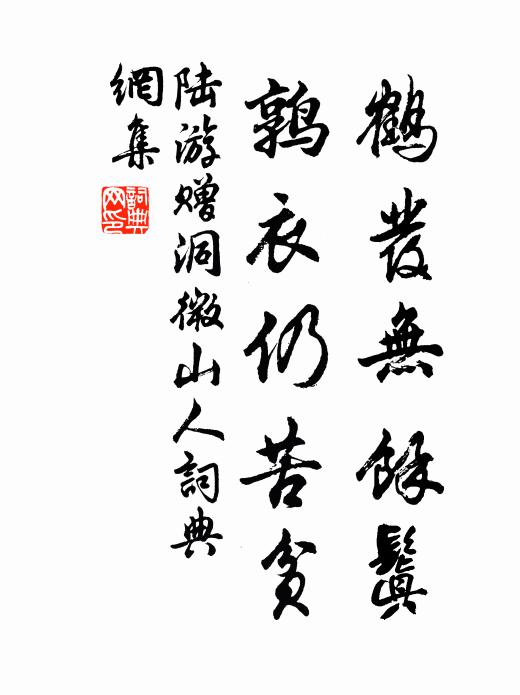 鶴發無餘鬒
鶉衣仍苦貧
陆游赠洞微山人詞典
網集
詞典网印